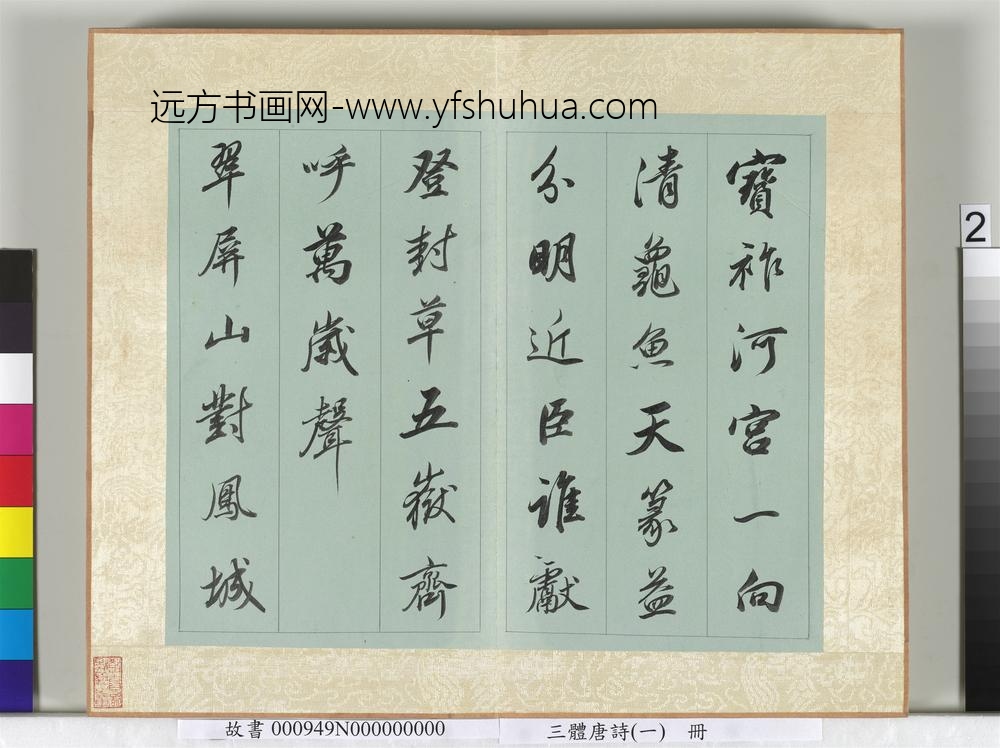 远方书画网-www.yfshuhua.com
寶祚河宮一向
清龜魚天篆益
分明近臣誰獻
登封草五嶽齊
呼萬歲聲
翠屏山對鳳城
2
故書 000949N000000000
三體唐詩(一) 冊